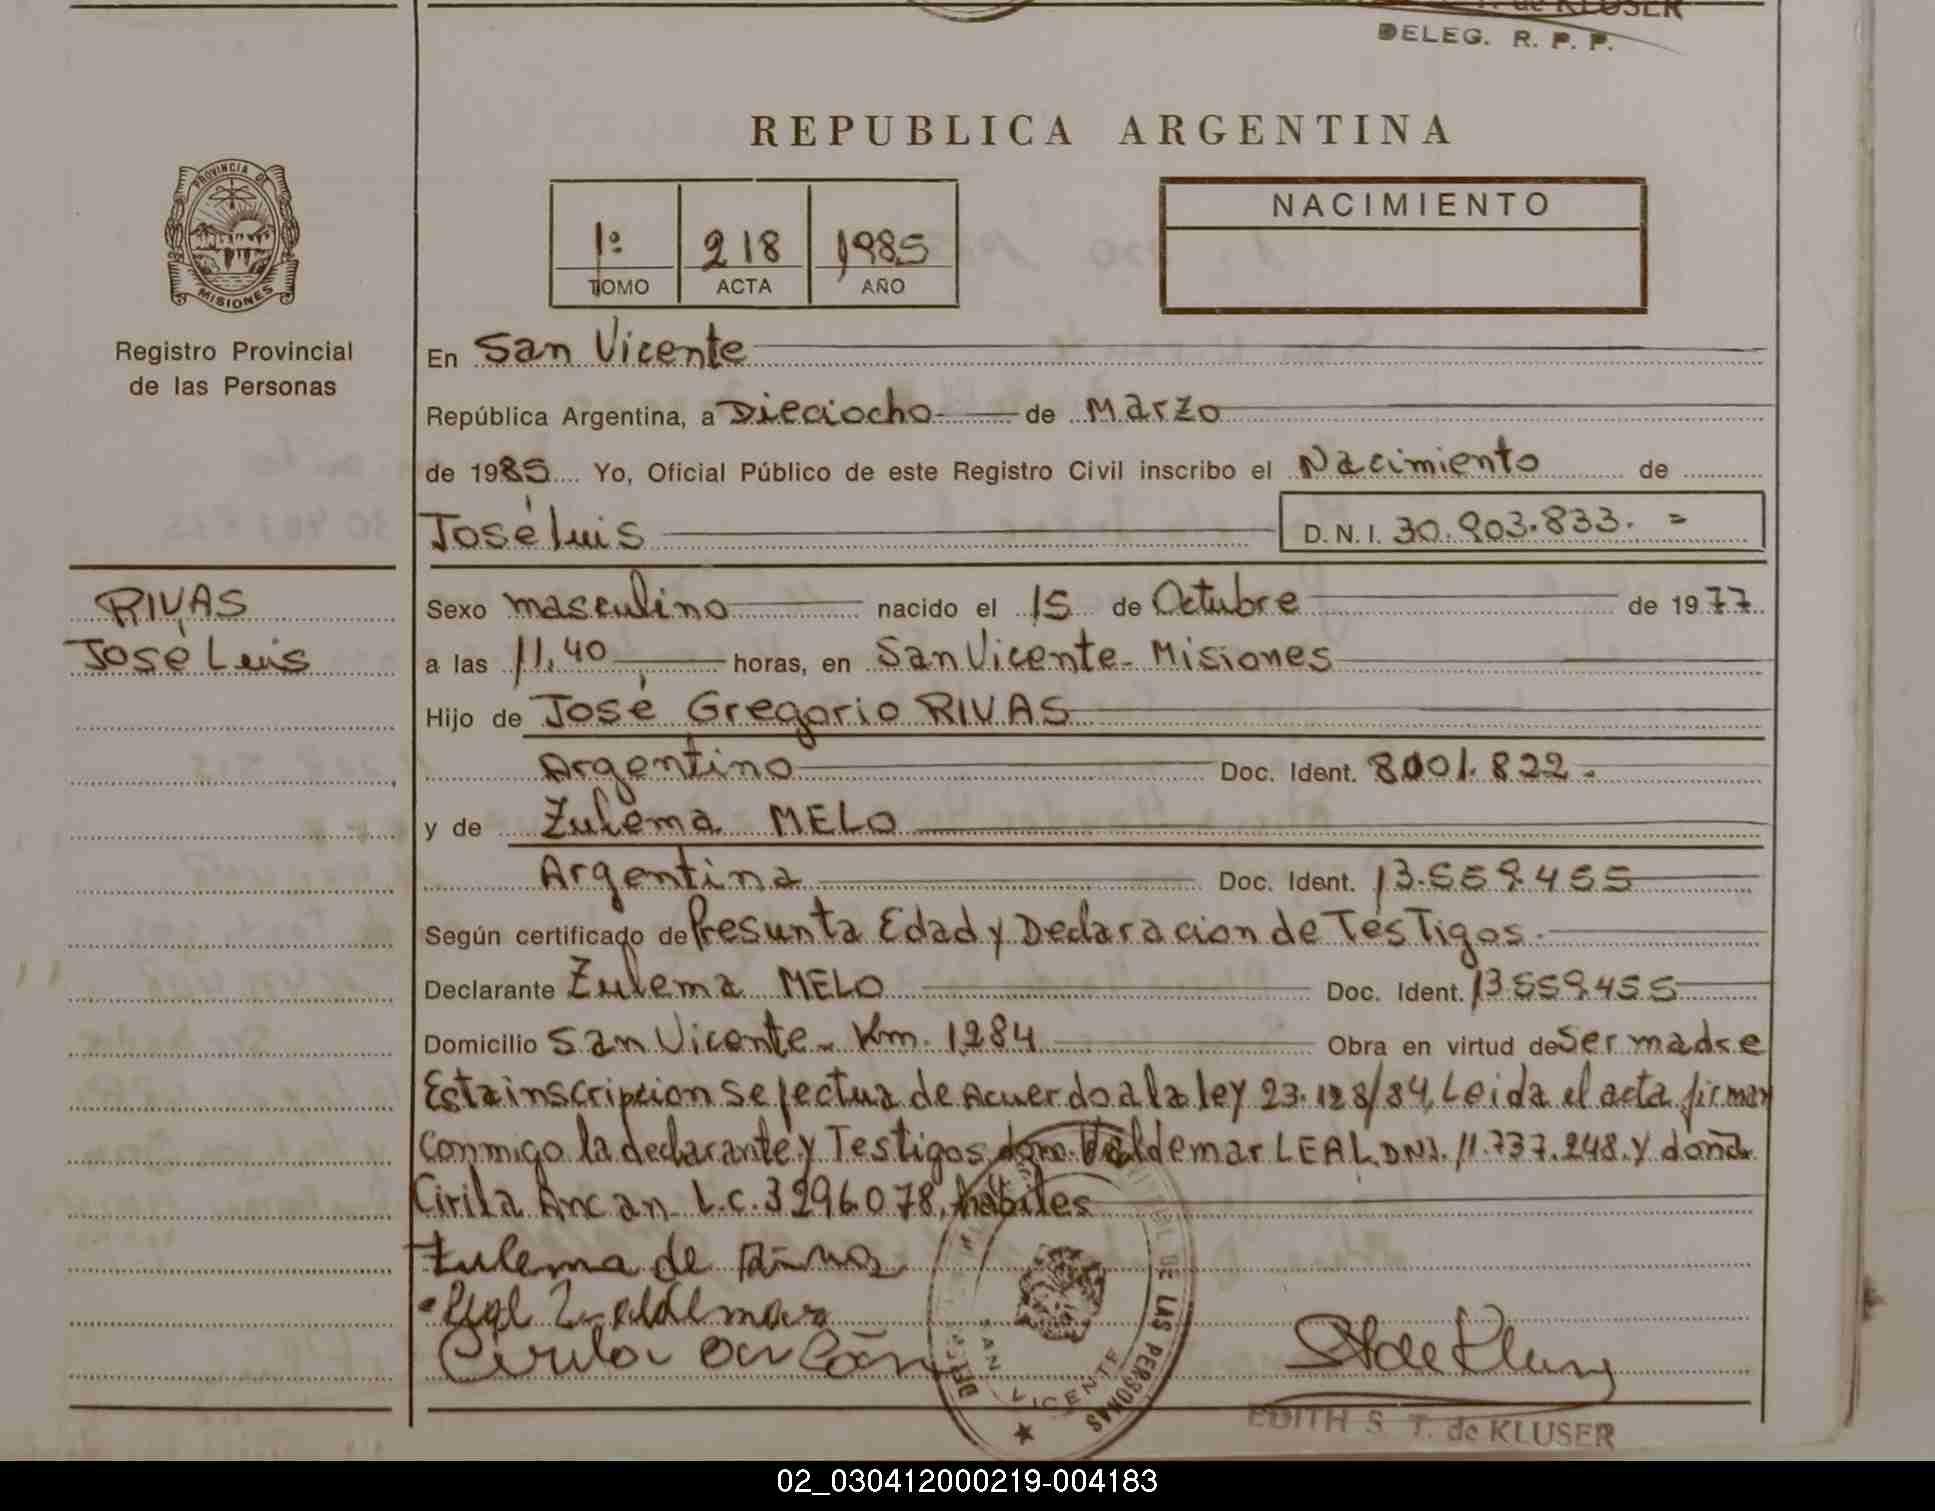 de KLUSER
DELEG. R. P. P.
REPUBLICA ARGENTINA
PROVINCIA DE
MISIONES
Registro Provincial
de las Personas
1º 218 1985
TOMO ACTA AÑO
NACIMIENTO
En San Vicente
República Argentina, a Dieciocho de Marzo
de 1985 Yo, Oficial Público de este Registro Civil inscribo el Nacimiento de
José Luis D.N.I. 30.903.833.=
RIVAS
José Luis
Sexo masculino nacido el 15 de Octubre de 1977
a las 11,40 horas, en San Vicente- Misiones
Hijo de José Gregorio RIVAS
Argentino Doc. Ident. 8001.822.-
y de Zulema MELO
Argentina Doc. Ident. 13.559.455
Según certificado de Presunta Edad y Declaracion de Testigos.
Declarante Zulema MELO Doc. Ident. 13559.455
Domicilio San Vicente- Km. 1284 Obra en virtud de Ser madre
Esta inscripcion se fectua de Acuerdo a la ley 23.128/84, Leida el acta firman
conmigo la declarante y Testigos don Valdemar LEAL DNI. 11.737.248. y doña
Cirila Ancan L.C. 3296078, habiles
Zulema de
DE LAS PERSONAS
SAN VICENTE
EDITH S T. de KLUSER
02_030412000219-004183